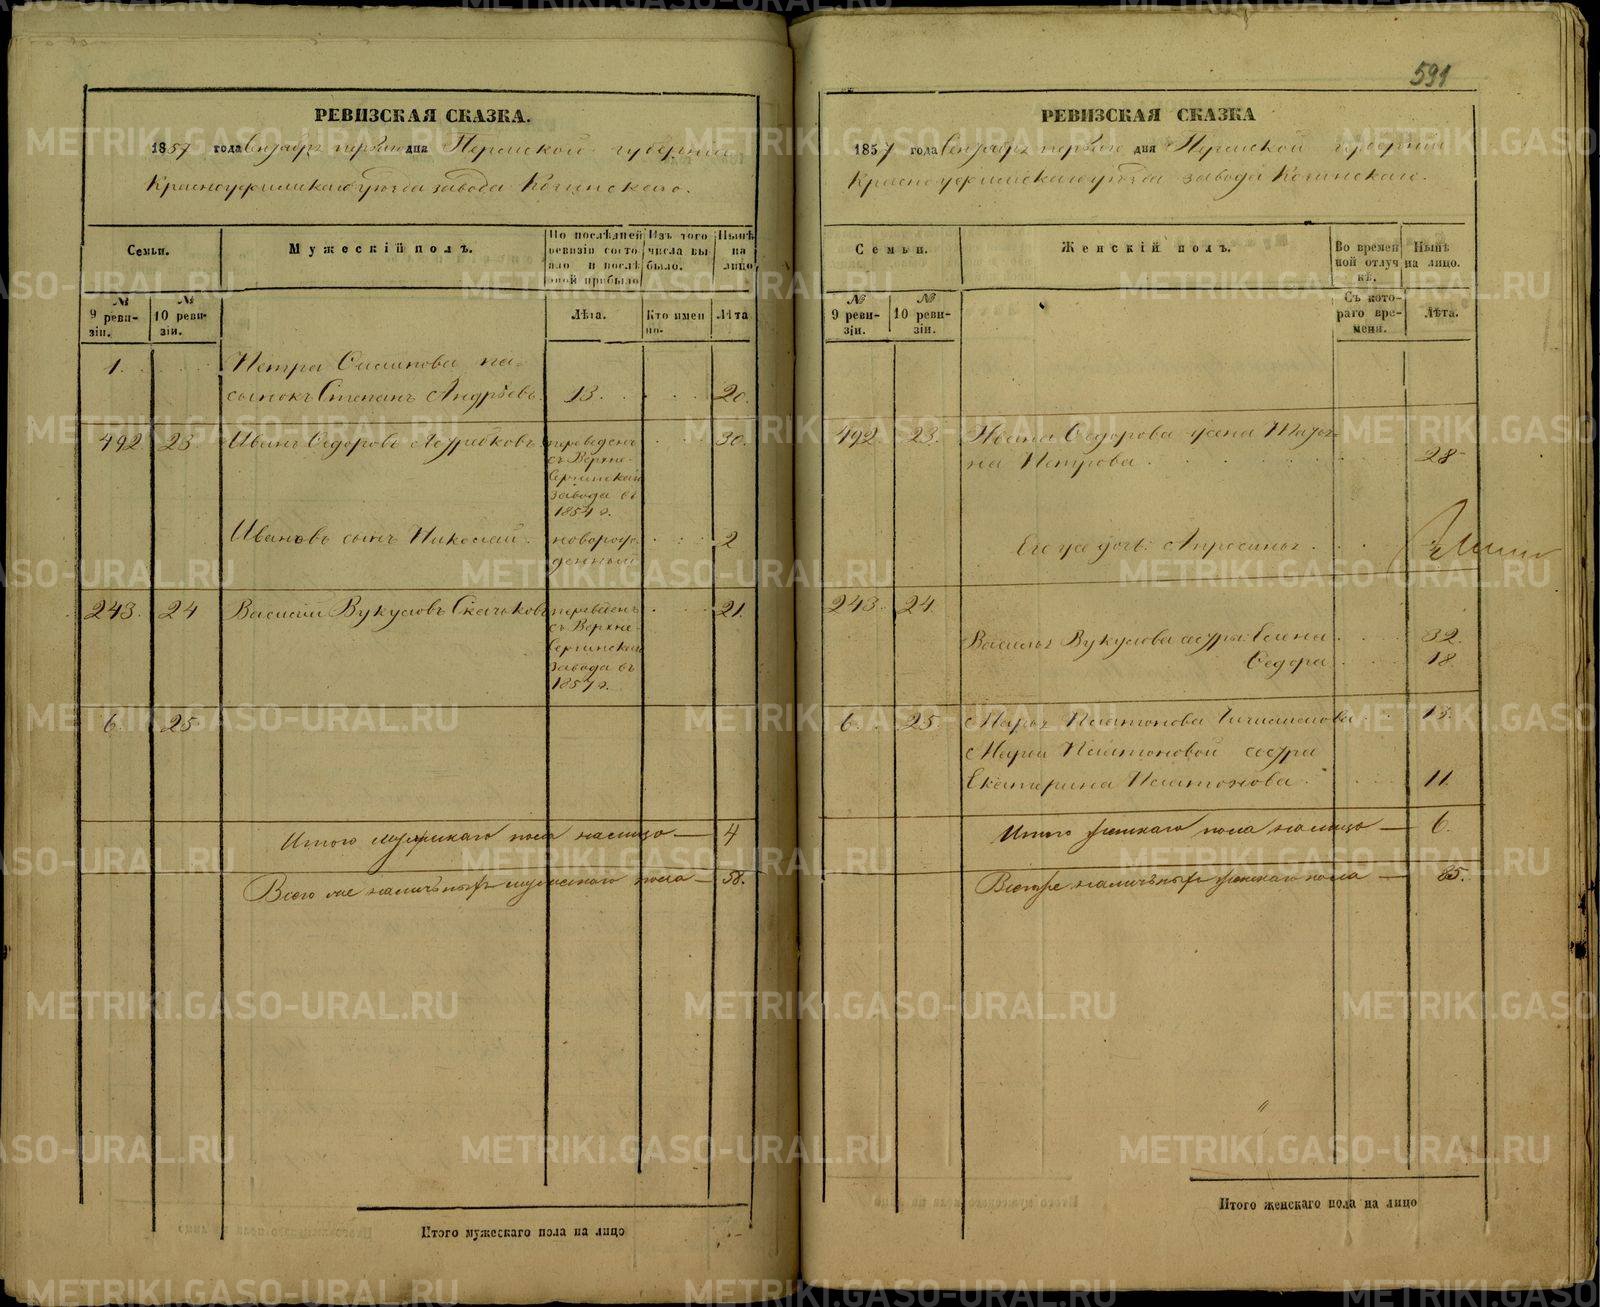 РЕВИЗСКАЯ СКАЗКА.
1857 года Октября перваго дня Пермской губерніи
Красноуфимскаго уѣзда завода Козинскаго.
Семьи.
Мужескій полъ.
По послѣдней ревизіи состояло и послѣ оной прибыло
Изъ того числа выбыло.
Нынѣ на лицо
№ 9 ревизіи.
№ 10 ревизіи.
Лѣта.
Кто именно.
Лѣта
1.
Петра Осипова па-
сынокъ Степанъ Андрѣевъ.
13.
20.
492
23
Иванъ Ѳедоровъ
переведенъ
съ Верхне-
Сергинскаго
завода въ
1854 г.
30.
Ивановъ сынъ Николай.
новорож-
денный
2
243.
24
Василій Вукуловъ Скачковъ
переведенъ
съ Верхне-
Сергинскаго
завода въ
1854 г.
21.
6.
25
Итого мужескаго пола налицо — 4
Всего же наличныхъ мужескаго пола — 58.
Итого мужескаго пола на лицо
591
РЕВИЗСКАЯ СКАЗКА
1857 года Октября перваго дня Пермской губерніи
Красноуфимскаго уѣзда завода Козинскаго.
Семьи.
Женскій полъ.
Во временной отлучкѣ.
Нынѣ на лицо.
№ 9 ревизіи.
№ 10 ревизіи.
Съ котораго времени.
Лѣта.
492
23.
Ивана Ѳедорова жена Матре-
на Петрова
28
Его же дочь
243.
24.
Василья Вукулова сестры: Елена
32.
Ѳедора
18
6.
25
Марья Платонова
13.
Марьи Платоновой сестра
Екатерина Платонова
11.
Итого женскаго пола налицо — 6.
Всего же наличныхъ женскаго пола — 85.
Итого женскаго пола на лицо
METRIKI.GASO-URAL.RU